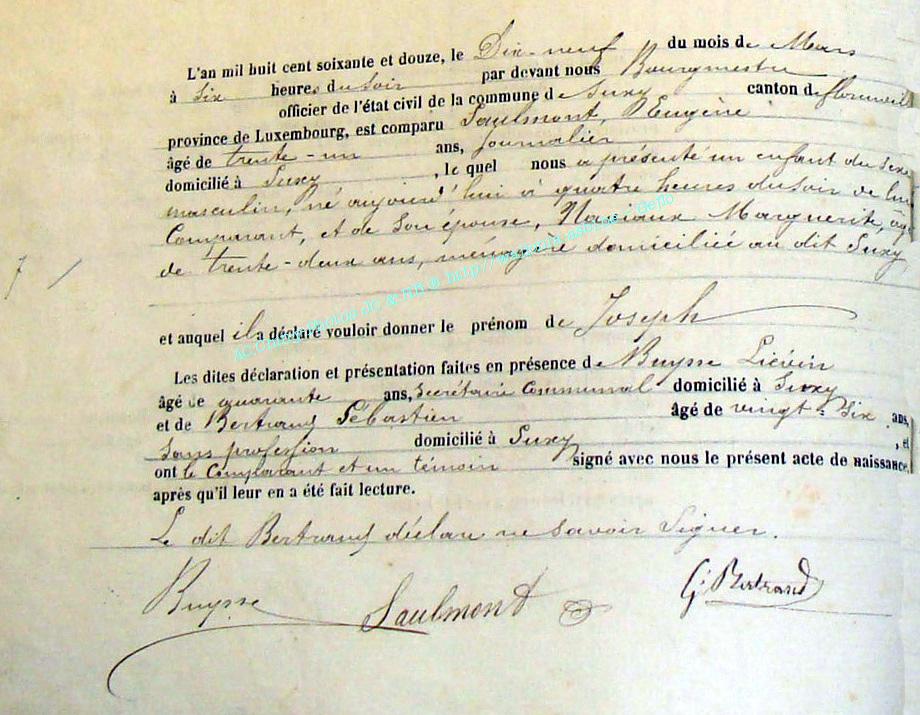 L'an mil huit cent soixante et douze, le Dix-neuf du mois de Mars
à Six heures du Soir par devant nous Bourgmestre
officier de l'état civil de la commune de Suxy canton de florenville
province de Luxembourg, est comparu Saulmont, Eugène
âgé de trente-un ans, journalier
domicilié à Suxy, le quel nous a présenté un enfant du Sexe
masculin, né aujourd'hui à quatre heures du Soir de lui
Comparant, et de Son épouse, Marguerite, âgée
de trente-deux ans, ménagère domiciliée au dit Suxy,
7 /
et auquel il a déclaré vouloir donner le prénom de Joseph
Les dites déclaration et présentation faites en présence de Buysse Liévin
âgé de quarante ans, Secrétaire Communal domicilié à Suxy
et de Bertrand Sébastien âgé de vingt-Six ans,
Sans profession domicilié à Suxy, et
ont le Comparant et un témoin signé avec nous le présent acte de naissance
après qu'il leur en a été fait lecture.
Le dit Bertrand déclare ne Savoir Signer.
Buysse Saulmont G. Bertrand